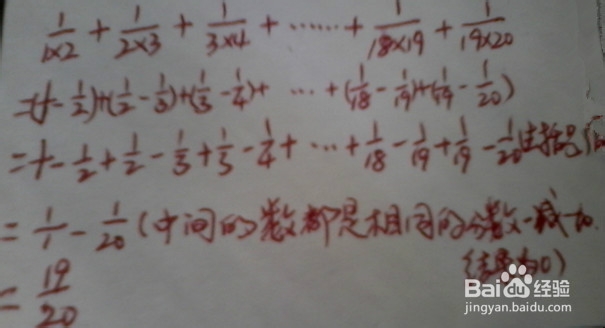 1/1×2 + 1/2×3 + 1/3×4 + …… + 1/18×19 + 1/19×20
=(1-1/2)+(1/2-1/3)+(1/3-1/4)+ … +(1/18-1/19)+(1/19-1/20)
=1-1/2+1/2-1/3+1/3-1/4+…+1/18-1/19+1/19-1/20 去括号
=1/1-1/20(中间的数都是相同的分数一减一加.
结果为0)
=19/20
Baidu经验
jingyan.baidu.com